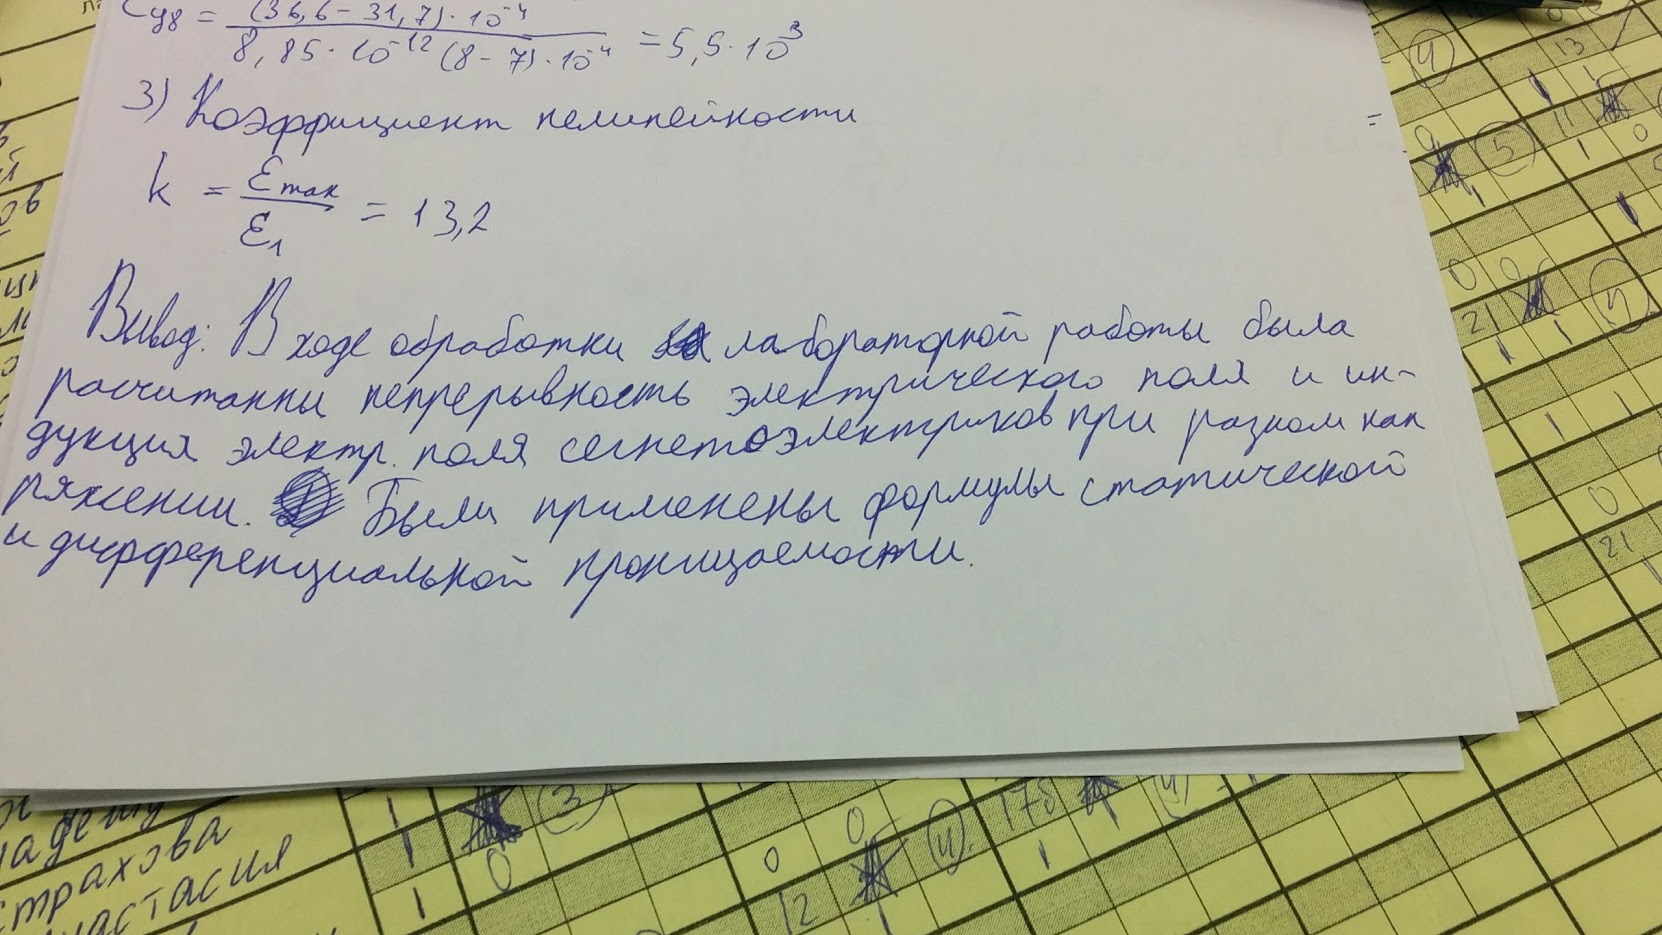 (36,6 - 31,7) · 10⁻⁴
8,85 · 10⁻¹² (8 - 7) · 10⁻⁴ = 5,5 · 10³
3) Коэффициент нелинейности
k = εmax / ε1 = 13,2
Вывод: В ходе обработки лабораторной работы была
расчитанны непрерывность электрического поля и ин-
дукция электр. поля сегнетоэлектриков при разном нап
ряжении. Были применены формулы статической
и дифференциальной проницаемости.
страхова
настасия
1 3 0 178 4
1 0 0 4
1 12
4 13
5 11 0
21 4
0
21